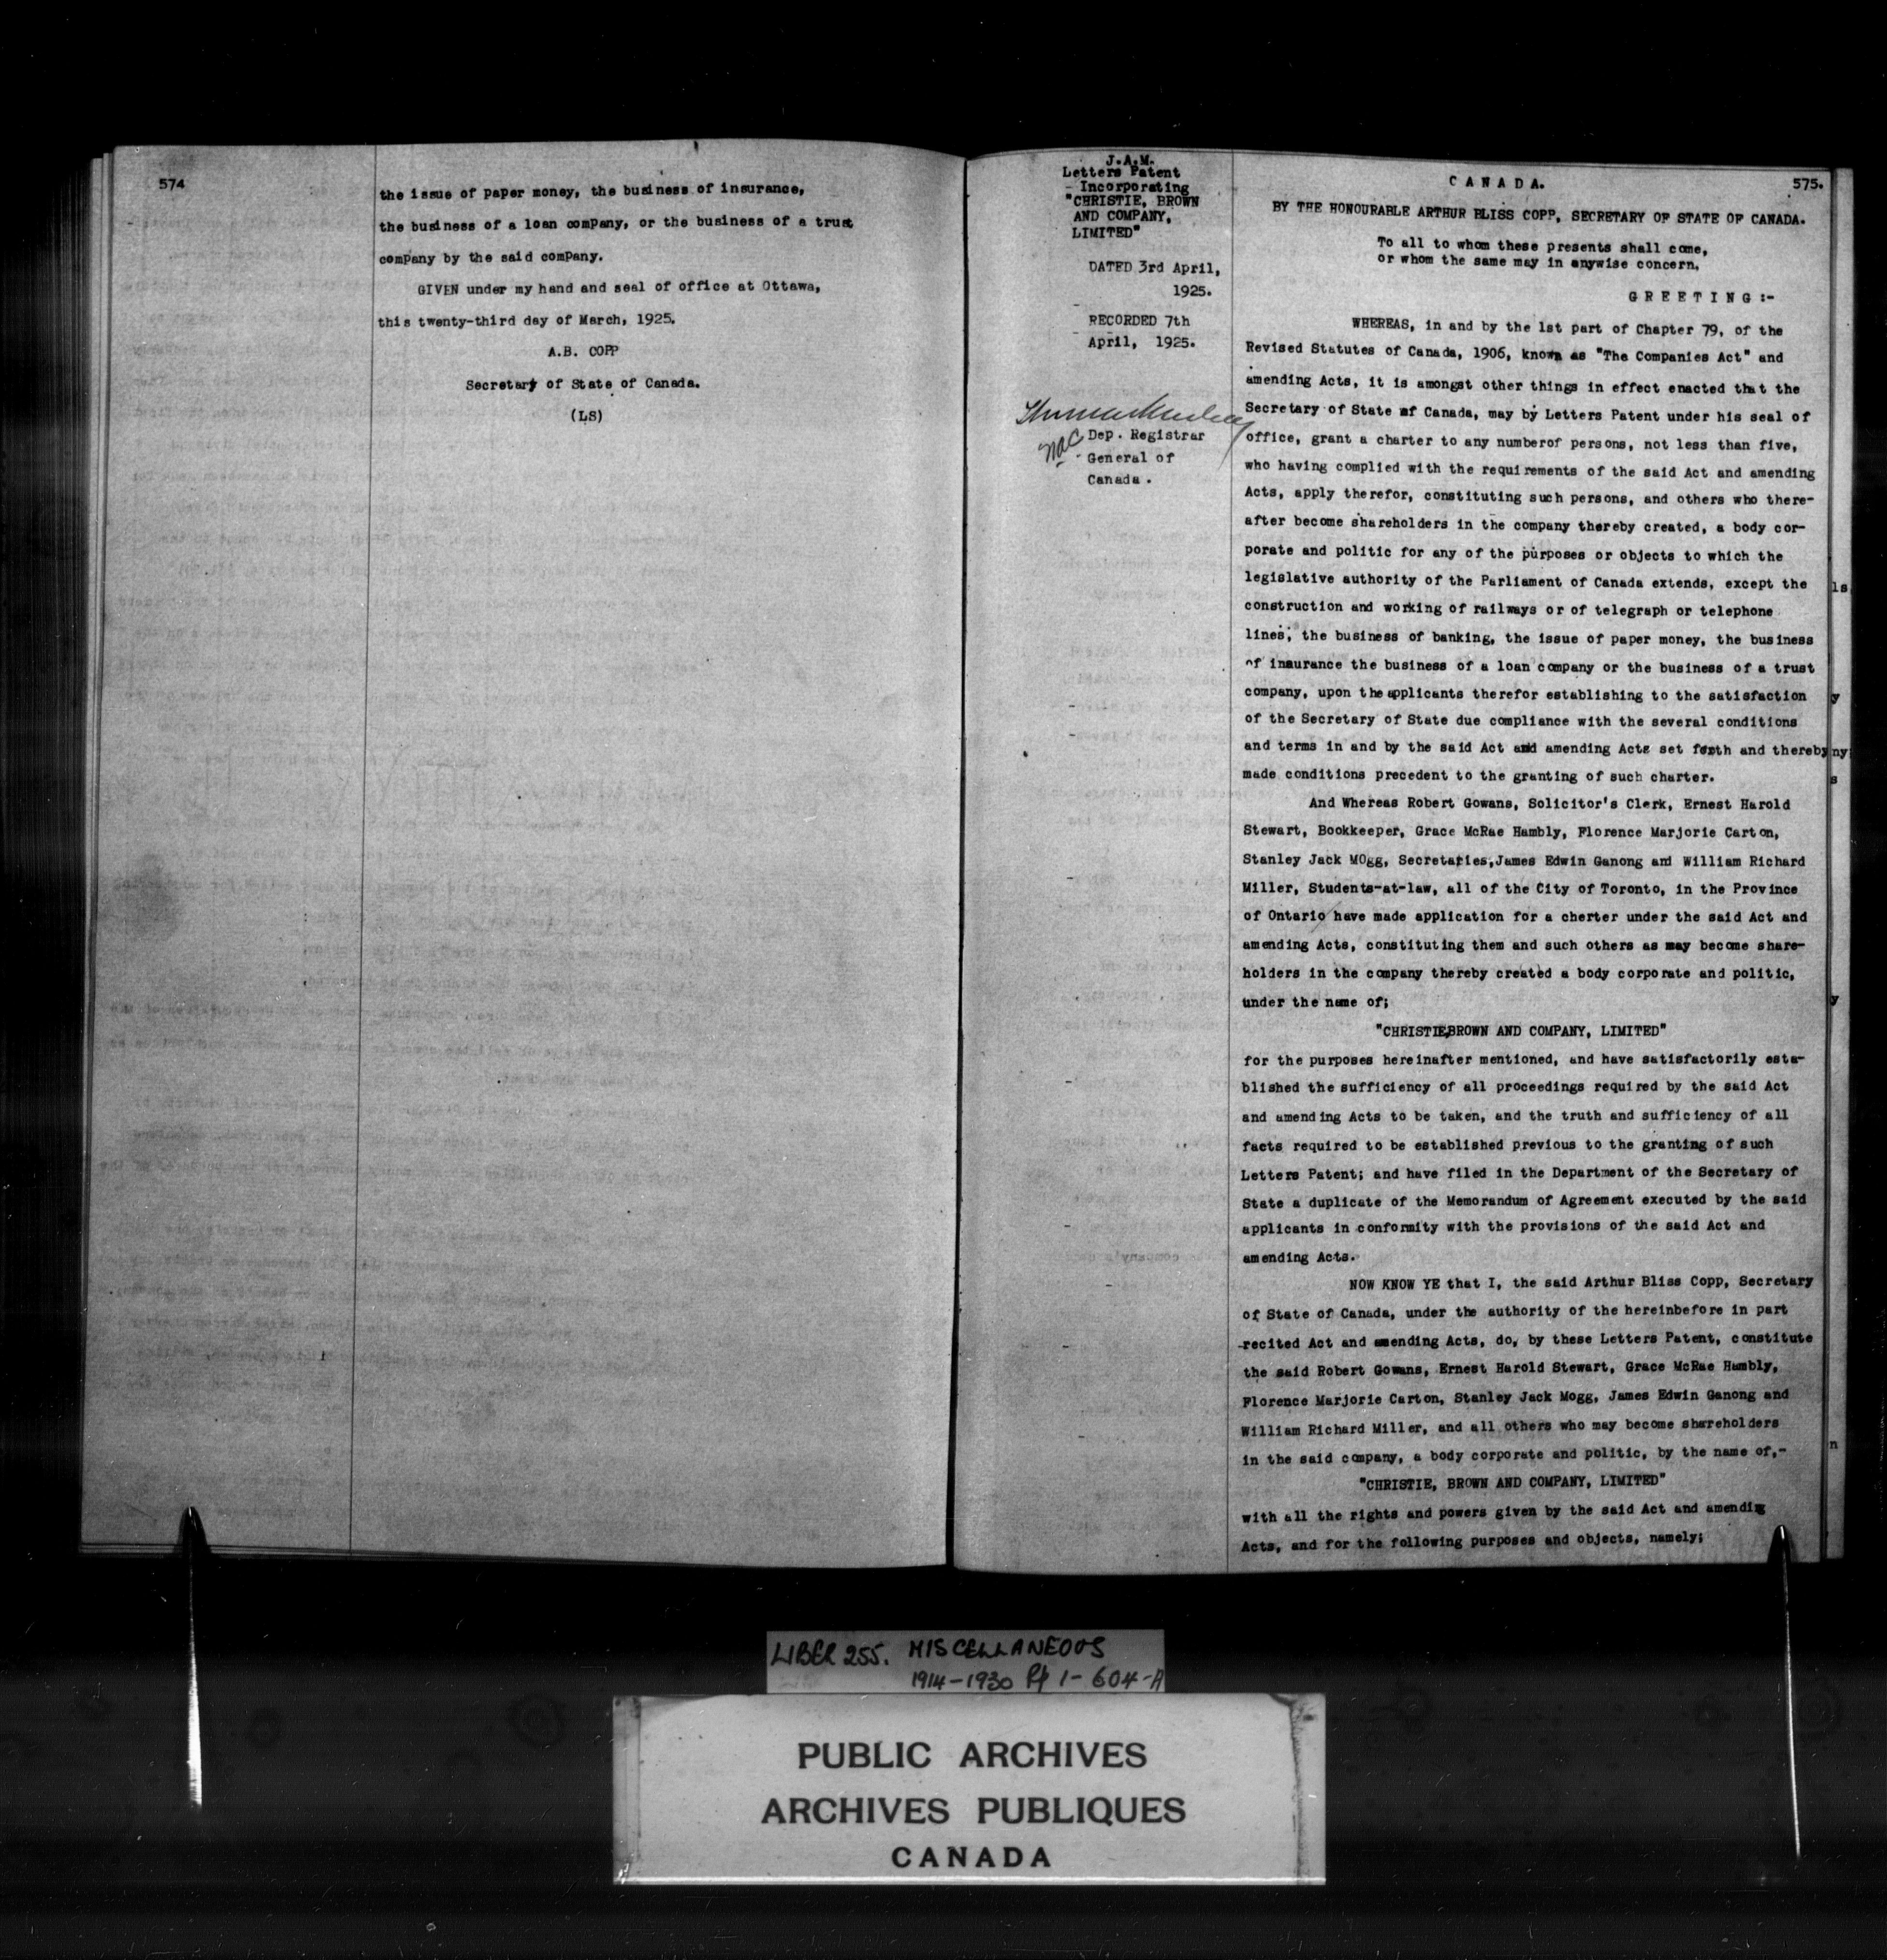 574
the issue of paper money, the business of insurance,
the business of a loan company, or the business of a trust
company by the said company.
GIVEN under my hand and seal of office at Ottawa,
this twenty-third day of March, 1925.
A.B. COPP
Secretary of State of Canada.
(LS)
J.A.M.
Letters Patent
Incorporating
"CHRISTIE, BROWN
AND COMPANY,
LIMITED"
DATED 3rd April,
1925.
RECORDED 7th
April, 1925.
Dep. Registrar
General of
Canada.
CANADA.
575.
BY THE HONOURABLE ARTHUR BLISS COPP, SECRETARY OF STATE OF CANADA.
To all to whom these presents shall come,
or whom the same may in anywise concern,
GREETING:-
WHEREAS, in and by the 1st part of Chapter 79, of the
Revised Statutes of Canada, 1906, known as "The Companies Act" and
amending Acts, it is amongst other things in effect enacted that the
Secretary of State of Canada, may by Letters Patent under his seal of
office, grant a charter to any numberof persons, not less than five,
who having complied with the requirements of the said Act and amending
Acts, apply therefor, constituting such persons, and others who there-
after become shareholders in the company thereby created, a body cor-
porate and politic for any of the purposes or objects to which the
legislative authority of the Parliament of Canada extends, except the
construction and working of railways or of telegraph or telephone
lines, the business of banking, the issue of paper money, the business
of insurance the business of a loan company or the business of a trust
company, upon the applicants therefor establishing to the satisfaction
of the Secretary of State due compliance with the several conditions
and terms in and by the said Act and amending Acts set forth and thereby
made conditions precedent to the granting of such charter.
And Whereas Robert Gowans, Solicitor's Clerk, Ernest Harold
Stewart, Bookkeeper, Grace McRae Hambly, Florence Marjorie Carton,
Stanley Jack MOgg, Secretaries, James Edwin Ganong and William Richard
Miller, Students-at-law, all of the City of Toronto, in the Province
of Ontario have made application for a cherter under the said Act and
amending Acts, constituting them and such others as may become share-
holders in the company thereby created a body corporate and politic,
under the name of;
"CHRISTIE,BROWN AND COMPANY, LIMITED"
for the purposes hereinafter mentioned, and have satisfactorily esta-
blished the sufficiency of all proceedings required by the said Act
and amending Acts to be taken, and the truth and sufficiency of all
facts required to be established previous to the granting of such
Letters Patent; and have filed in the Department of the Secretary of
State a duplicate of the Memorandum of Agreement executed by the said
applicants in conformity with the provisions of the said Act and
amending Acts.
NOW KNOW YE that I, the said Arthur Bliss Copp, Secretary
of State of Canada, under the authority of the hereinbefore in part
recited Act and amending Acts, do, by these Letters Patent, constitute
the said Robert Gowans, Ernest Harold Stewart, Grace McRae Hambly,
Florence Marjorie Carton, Stanley Jack Mogg, James Edwin Ganong and
William Richard Miller, and all others who may become shareholders
in the said company, a body corporate and politic, by the name of,-
"CHRISTIE, BROWN AND COMPANY, LIMITED"
with all the rights and powers given by the said Act and amending
Acts, and for the following purposes and objects, namely;
LIBER 255. MISCELLANEOUS
1914-1930 Pp 1-604-A
PUBLIC ARCHIVES
ARCHIVES PUBLIQUES
CANADA